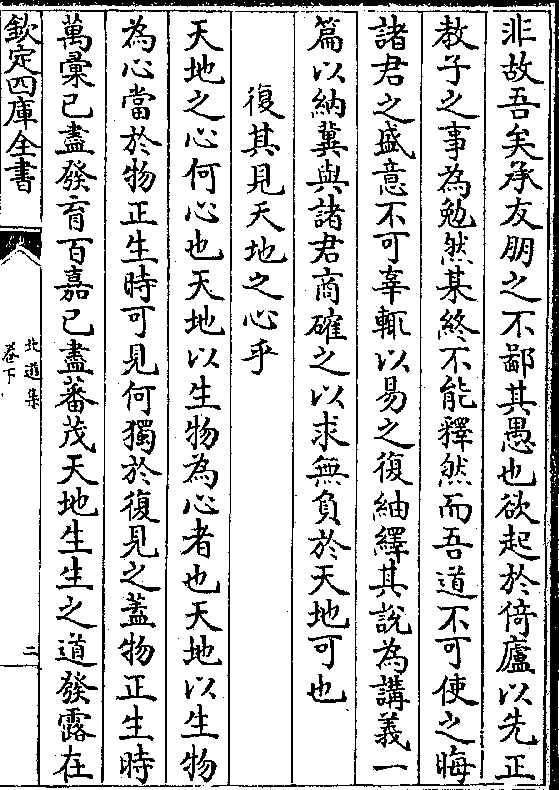 非故吾矣承友朋之不鄙其愚也欲起於倚廬以先正
教子之事為勉然某終不能釋然而吾道不可使之晦
諸君之盛意不可辜輒以易之復紬繹其說為講義一
篇以納冀與諸君商確之以求無負於天地可也
復其見天地之心乎
天地之心何心也天地以生物為心者也天地以生物
為心當於物正生時可見何獨於復見之蓋物正生時
萬彙已盡發育百嘉已盡蕃茂天地生生之道發露在
欽定四庫全書
北遊集
卷下
二